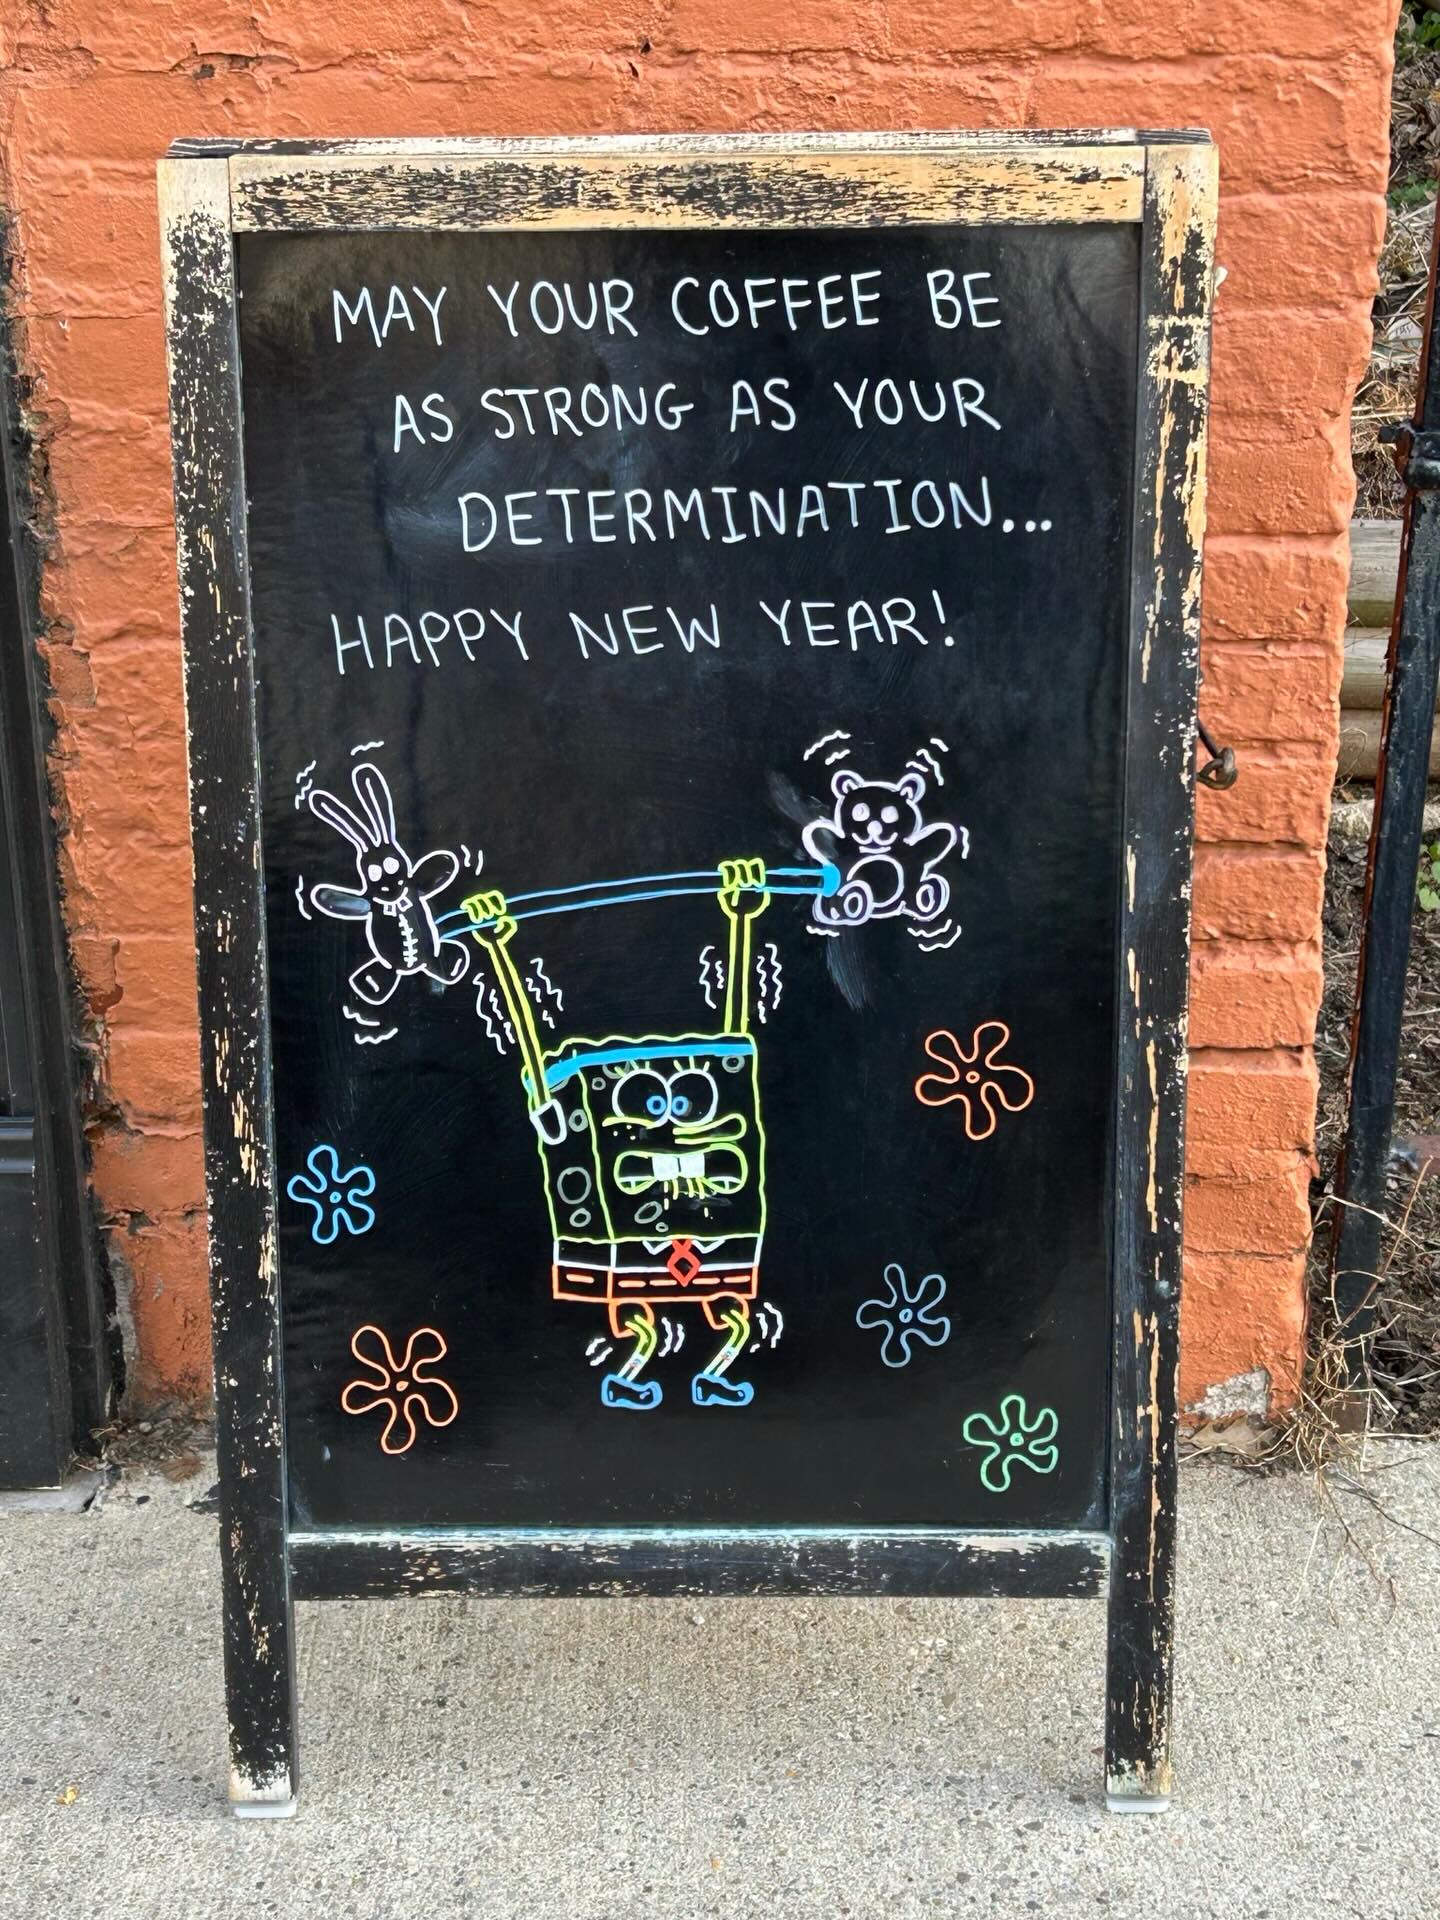 MAY YOUR COFFEE BE
AS STRONG AS YOUR
DETERMINATION...
HAPPY NEW YEAR!